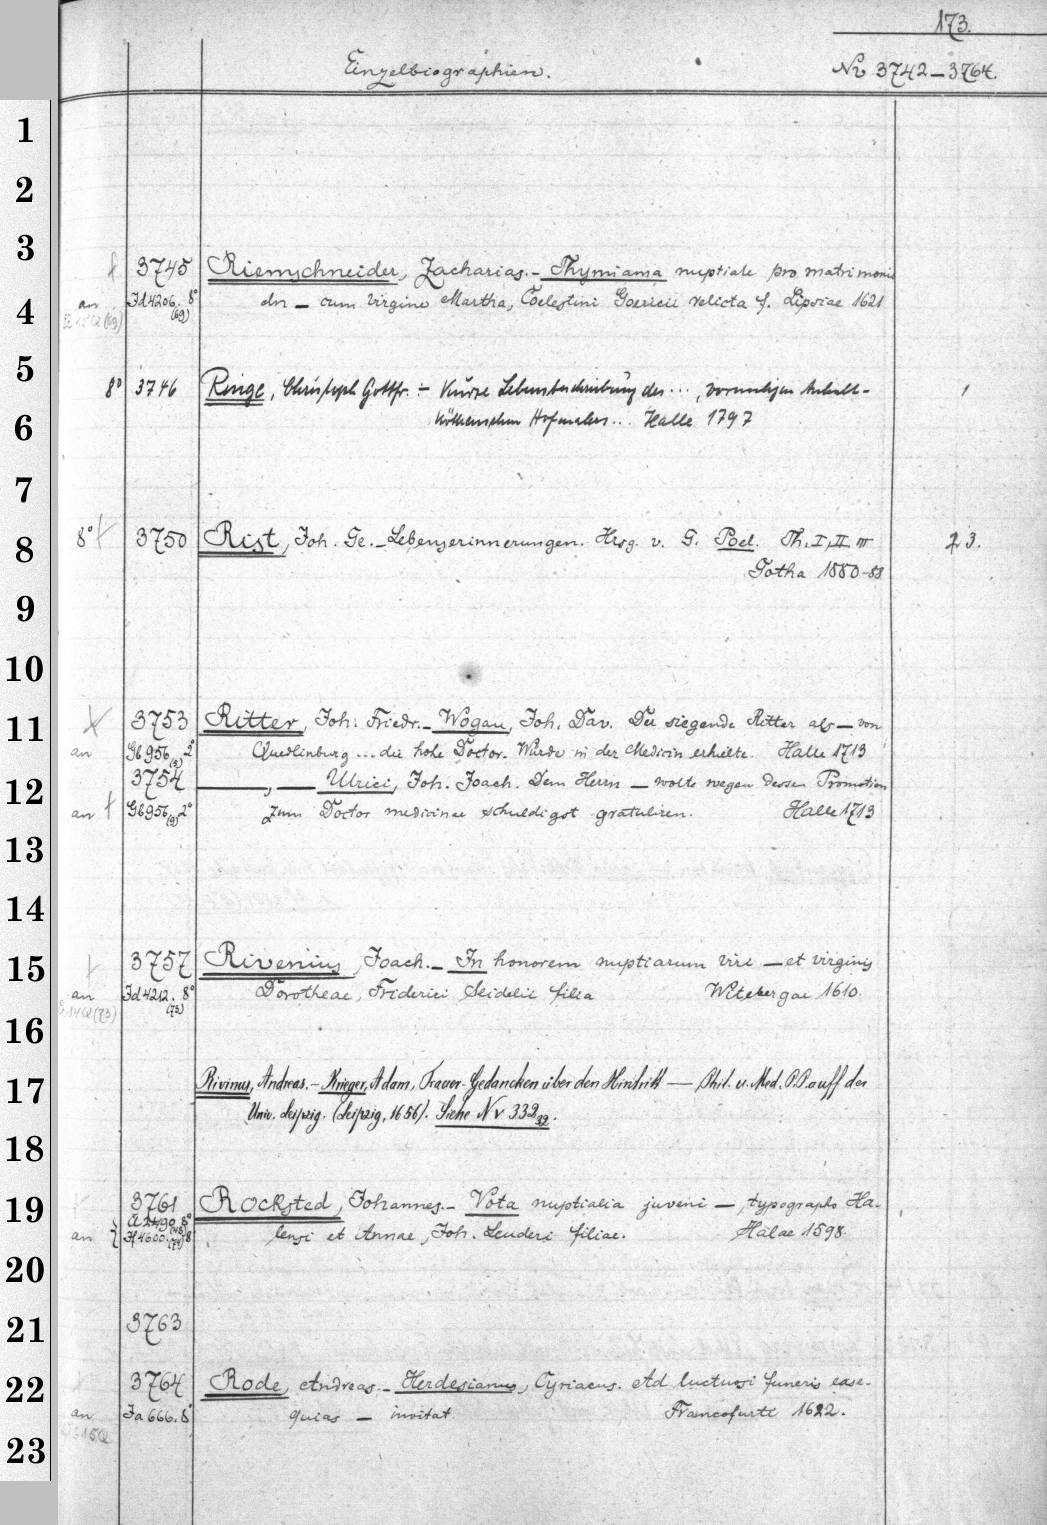 173.
Einzelbiographien.
Nr 3742–3764.
1
2
3
3745 Riemschneider, Zacharias. – Thymiama nuptiale pro matrimonio
4
an Jd 4206. 8° (69) dn – cum virgine Martha, Coelestini Goericii relicta f. Lipsiae 1621
5
8° 3746 Ringe, Christoph Gottfr. – Kurze Lebensbeschreibung des ..., vormaligen Anhalt- 1
6
Köthenschen Hofmalers ... Halle 1797
7
8
8° 3750 Rist, Joh. Ge. – Lebenserinnerungen. Hrsg. v. G. Poel. Th. I, II, III 23.
Gotha 1880–88
9
10
11
3753 Ritter, Joh. Friedr. – Wogau, Joh. Dav. Der siegende Ritter als – von
an Gb 956 (8) 2° Quedlinburg ... die hohe Doctor-Würde in der Medicin erhielte. Halle 1713
12
3754 —, — Ulrici, Joh. Joach. Dem Herrn – wolte wegen dessen Promotion
an Gb 956 (9) 2° zum Doctor medicinae schuldigst gratuliren. Halle 1713
13
14
15
3757 Rivenius, Joach. – In honorem nuptiarum viri – et virginis
an Jd 4212. 8° (73) Dorotheae, Friderici Seidelii filia Witebergae 1610.
16
17
Rivinus, Andreas. – Krieger, Adam, Trauer-Gedancken über den Hintritt — Phil. u. Med. P.P. auff der
Univ. Leipzig. (Leipzig, 1656). Siehe Nr 332 32.
18
19
3761 Rocksted, Johannes. – Vota nuptialia juveni –, typographo Ha-
an Jf 4600. 8° lensi et Annae, Joh. Leuderi filiae. Halae 1598.
20
21
3763
22
3764 Rode, Andreas. – Herdesianus, Cyriacus. Ad luctuosi funeris exse-
an Ja 666. 8° quias – invitat Francofurti 1622.
23